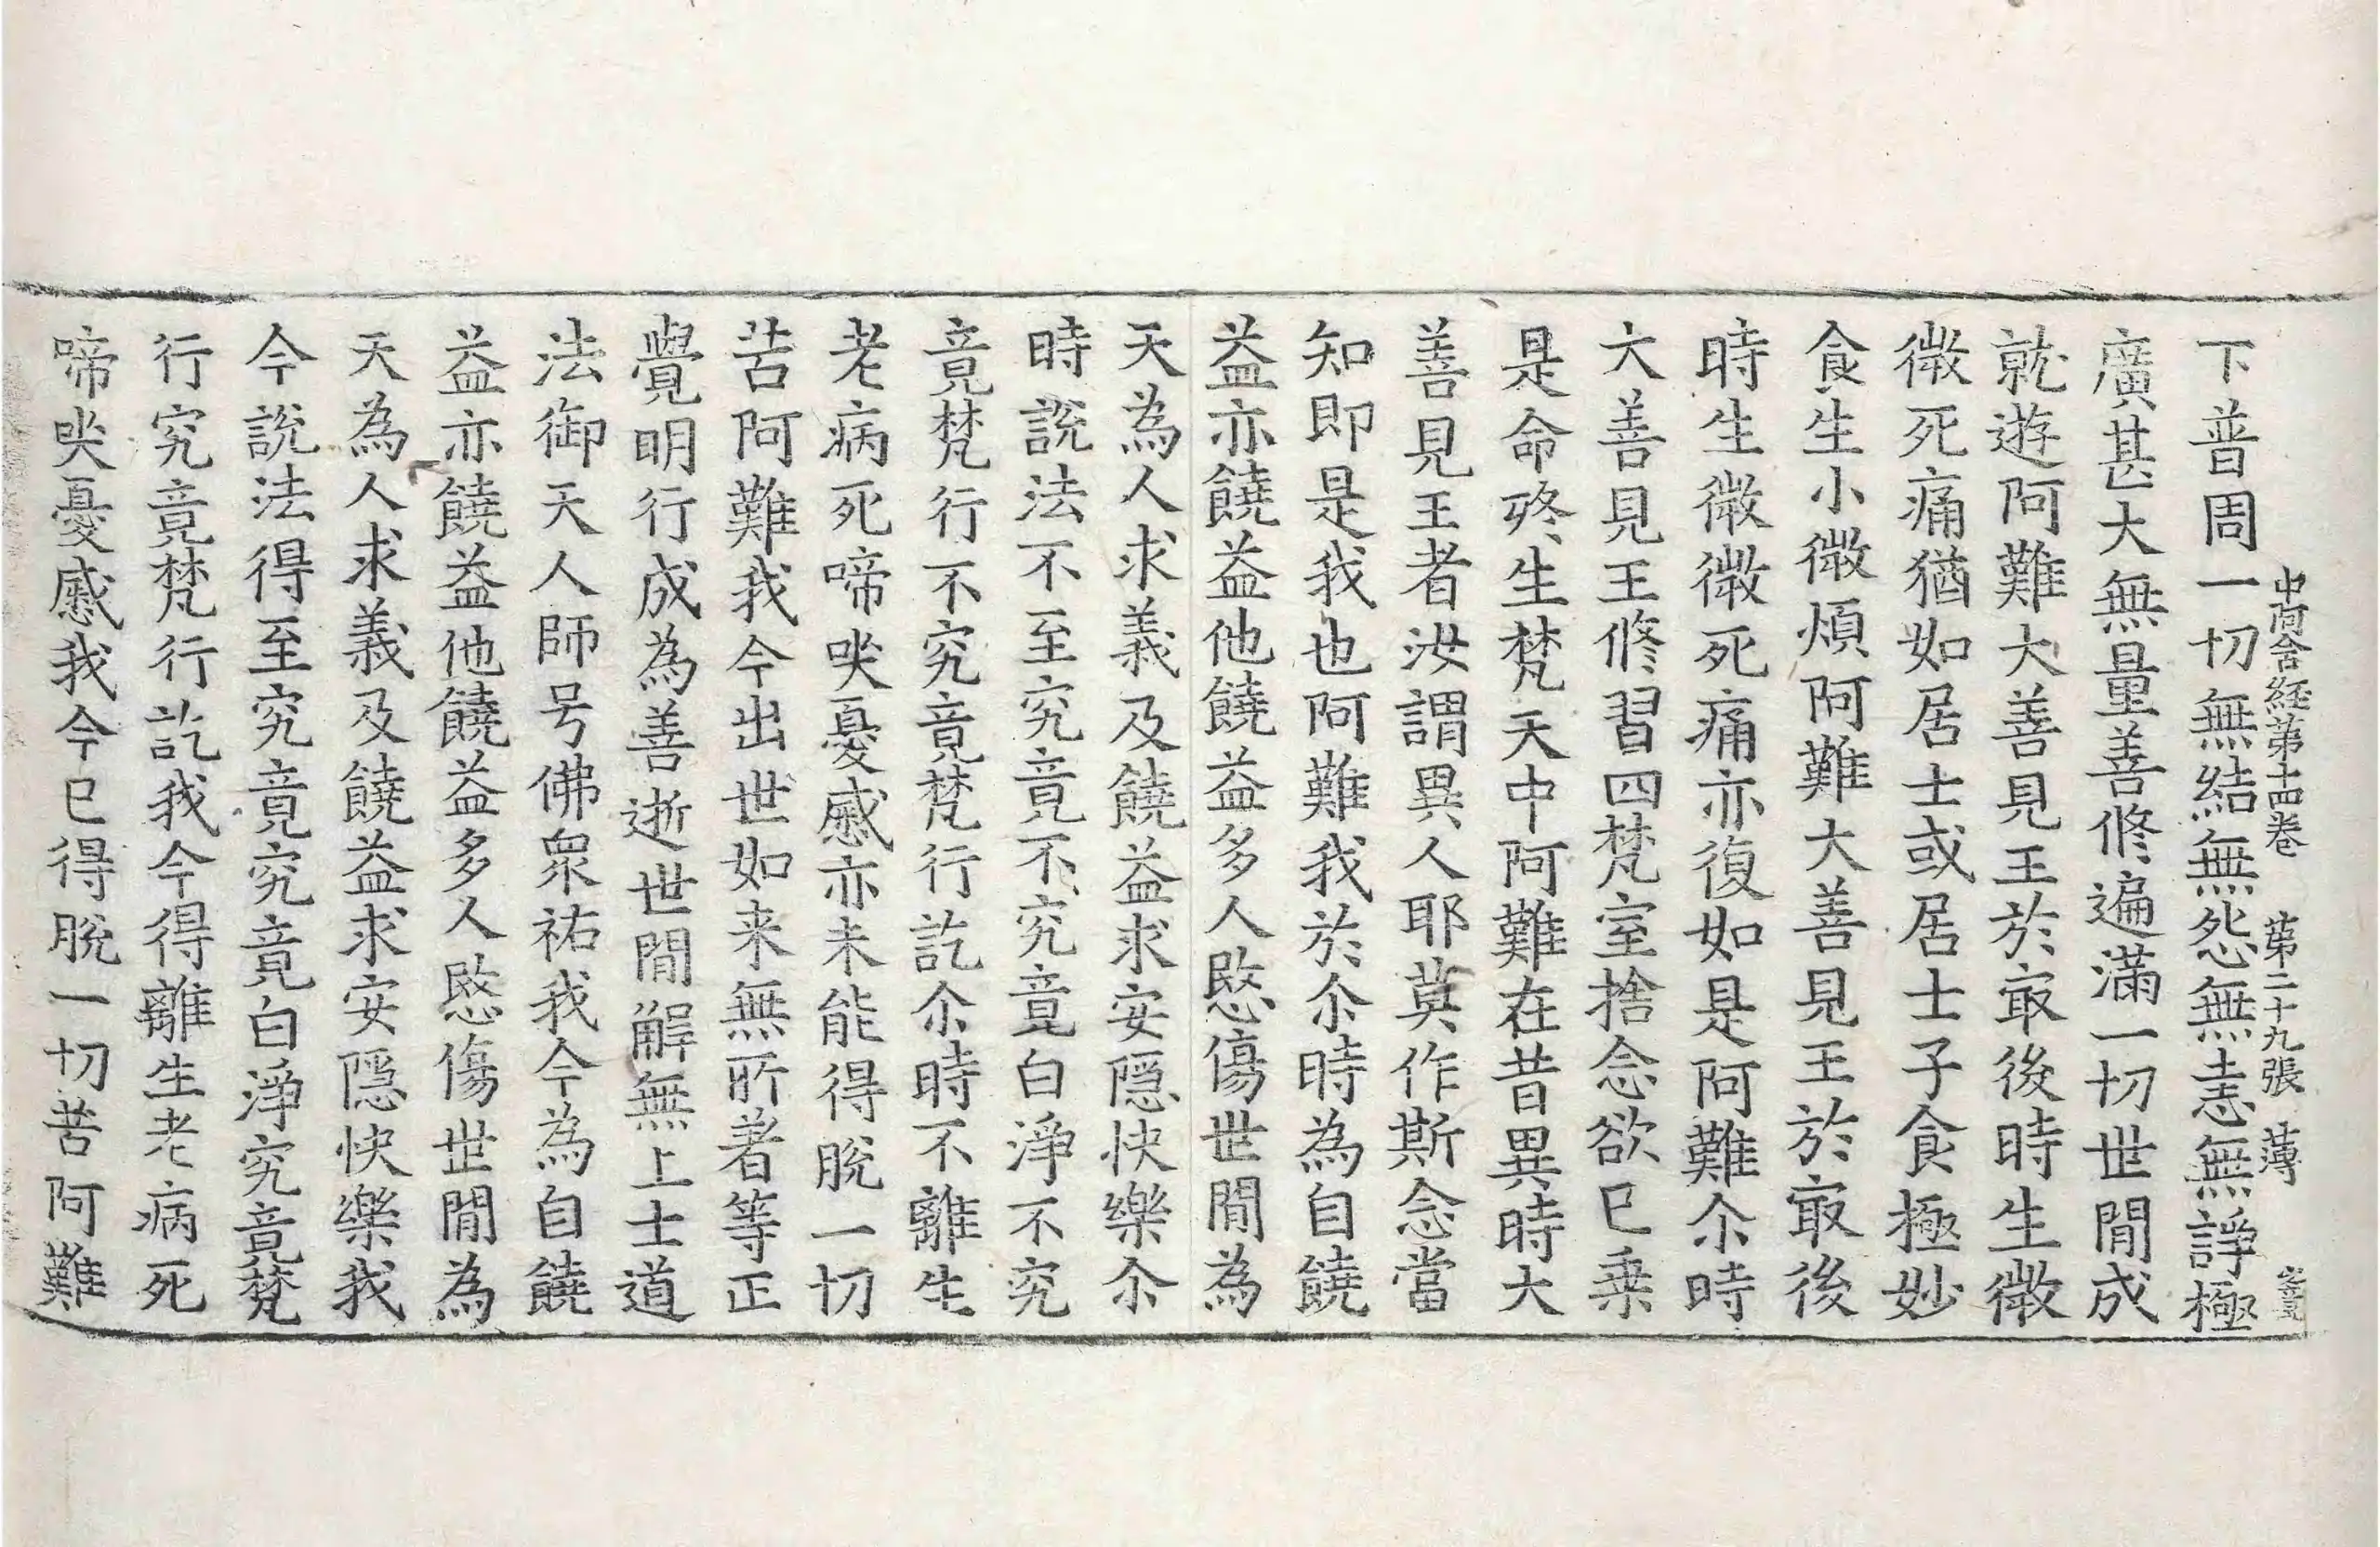 中阿含経苐十四卷 苐二十九張 薄
下普周一切無結無怨無恚無諍極
廣甚大無量善修遍滿一切世閒成
就遊阿難大善見王於㝡後時生微
微死痛猶如居士或居士子食極妙
食生小微煩阿難大善見王於㝡後
時生微微死痛亦復如是阿難尒時
大善見王修習四梵室捨念欲已乗
是命終生梵天中阿難在昔異時大
善見王者汝謂異人耶莫作斯念當
知即是我也阿難我於尒時為自饒
益亦饒益他饒益多人愍傷世閒為
天為人求義及饒益求安隠快樂尒
時說法不至究竟不究竟白淨不究
竟梵行不究竟梵行訖尒時不離生
老病死啼哭憂慼亦未能得脫一切
苦阿難我今出世如来無所著等正
覺明行成為善逝世閒解無上士道
法御天人師号佛衆祐我今為自饒
益亦饒益他饒益多人愍傷世閒為
天為人求義及饒益求安隠快樂我
今說法得至究竟究竟白淨究竟梵
行究竟梵行訖我今得離生老病死
啼哭憂慼我今已得脫一切苦阿難